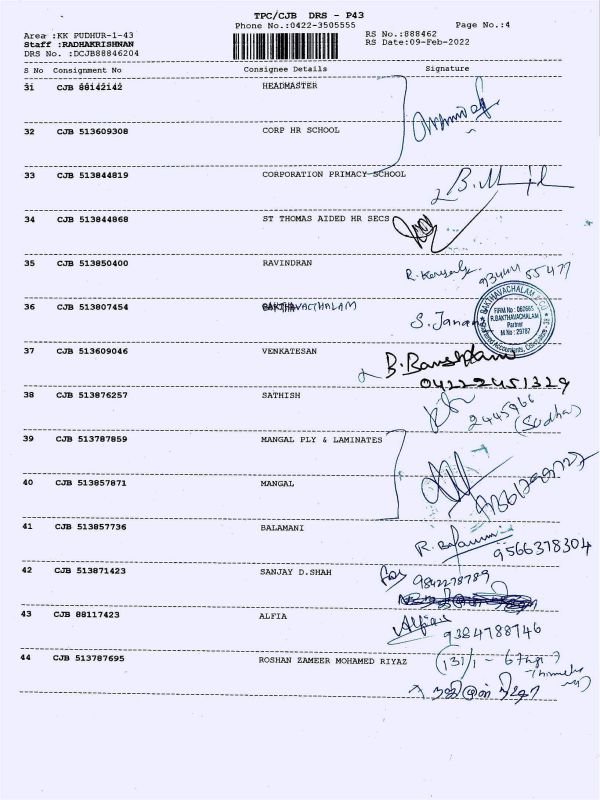 TPC/CJB DRS - P43
Phone No.:0422-3505555 Page No.:4
Area :KK PUDHUR-1-43 RS No.:888462
Staff :RADHAKRISHNAN RS Date:09-Feb-2022
DRS No. :DCJB88846204
S No Consignment No Consignee Details Signature
31 CJB 88142142 HEADMASTER
32 CJB 513609308 CORP HR SCHOOL
33 CJB 513844819 CORPORATION PRIMACY SCHOOL
34 CJB 513844868 ST THOMAS AIDED HR SECS
35 CJB 513850400 RAVINDRAN
36 CJB 513807454 BAKTHAVACTHALAM S. Janan
BAKTHAVACHALAM & CO
FIRM No : 062665
R.BAKTHAVACHALAM
Partner
M No : 29787
Chartered Accountants, Coimbatore
37 CJB 513609046 VENKATESAN
04222451329
38 CJB 513876257 SATHISH 2445966
(Sudha)
39 CJB 513787859 MANGAL PLY & LAMINATES
40 CJB 513857871 MANGAL
41 CJB 513857736 BALAMANI
9566318304
42 CJB 513871423 SANJAY D.SHAH 9842278789
43 CJB 88117423 ALFIA Alfia
9384788746
44 CJB 513787695 ROSHAN ZAMEER MOHAMED RIYAZ